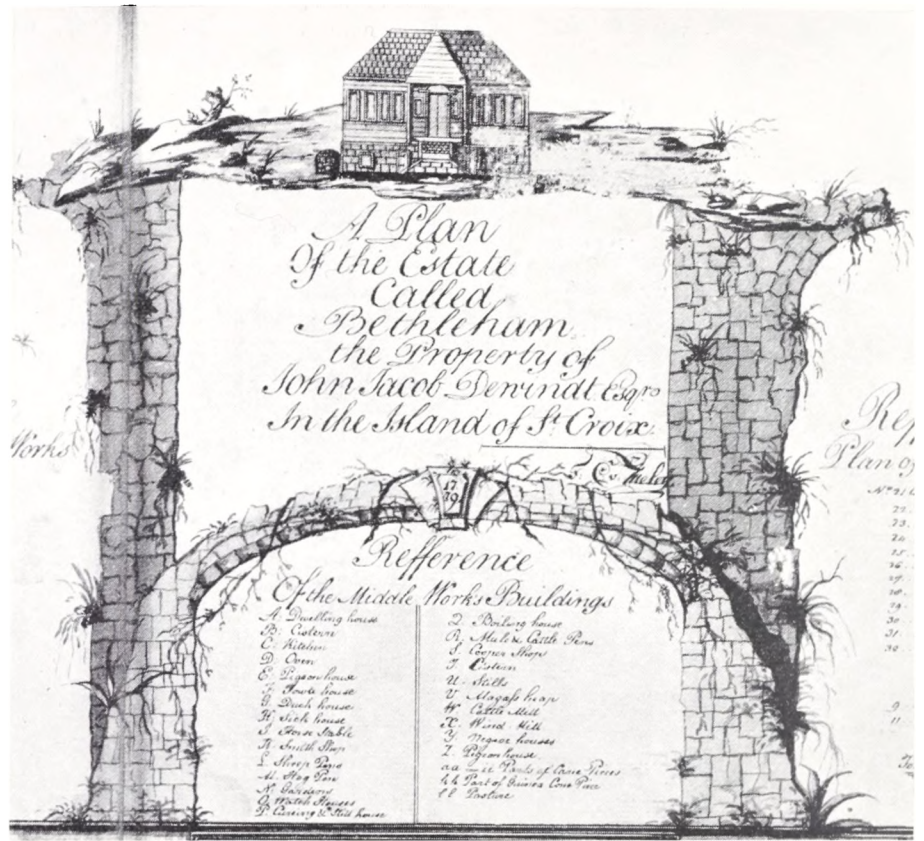 A Plan
Of the Estate
Called
Bethleham
the Property of
John Jacob Dewindt Esqrs
In the Island of St Croix
17
79
Refference
Of the Middle Works Buildings
A. Dwelling house
B. Cistern
C. Kitchen
D. Oven
E. Pigeon house
F. Fowle house
G. Duck house
H. Sick house
I. Horse Stable
K. Smith Shop
L. Sheep Pens
M. Hog Pen
N. Gardens
O. Watch Houses
P. Cureing & Still house
Q. Boiling house
R. Mule & Cattle Pens
S. Cooper Shop
T. Cistern
U. Stills
V. Magass heap
W. Cattle Mill
X. Wind Mill
Y. Negroe houses
Z. Pigeon house
aa Parts of Cane Pieces
bb Part of Guinea Corn Piece
cc Pasture
Works
Plan of
22
23
24
25
26
27
29
30
31
9
11